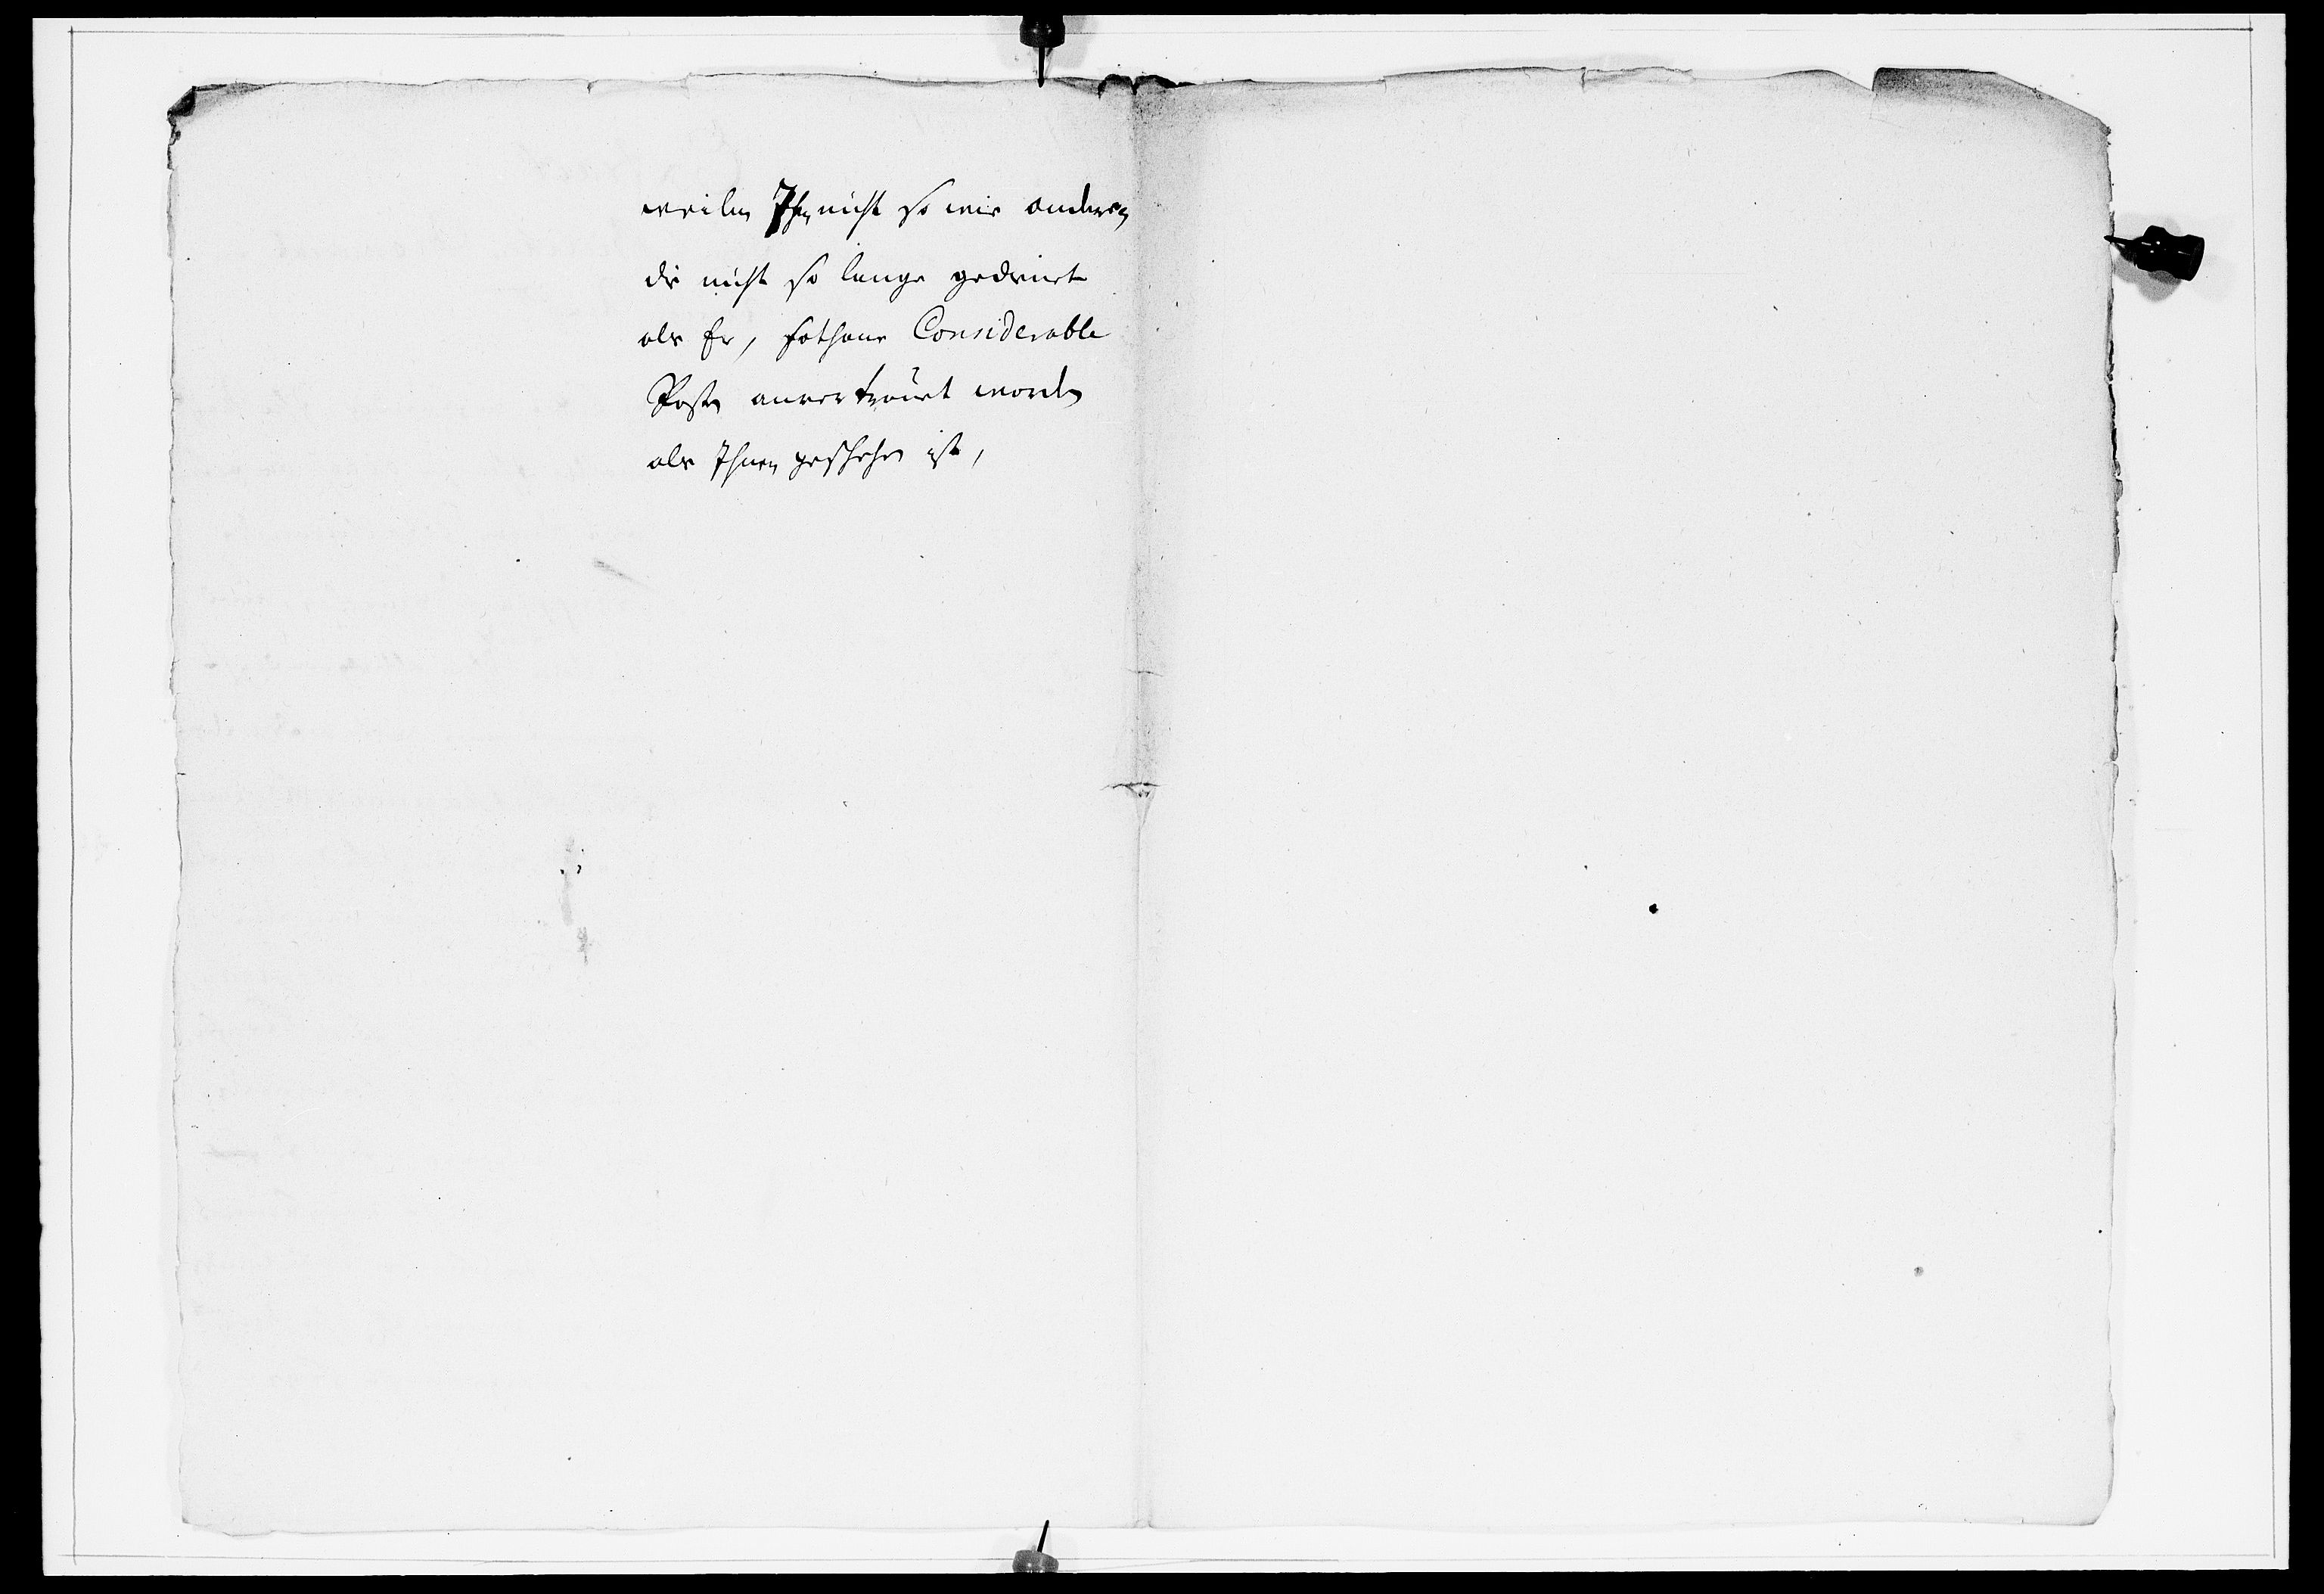 weilen Ihn nicht so wie anderen,
die nicht so lange gedienet
als Er, sothane Considerable
Posten anvertrauet worden
als Ihnen geschehen ist,